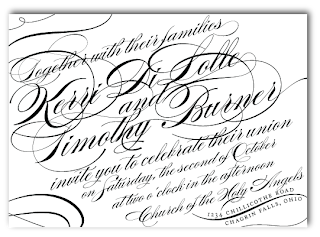 Together with their families
Kerri Di Lolle
and
Timothy Burner
invite you to celebrate their union
on Saturday, the second of October
at two o'clock in the afternoon
Church of the Holy Angels
1234 CHILLICOTHE ROAD
CHAGRIN FALLS, OHIO